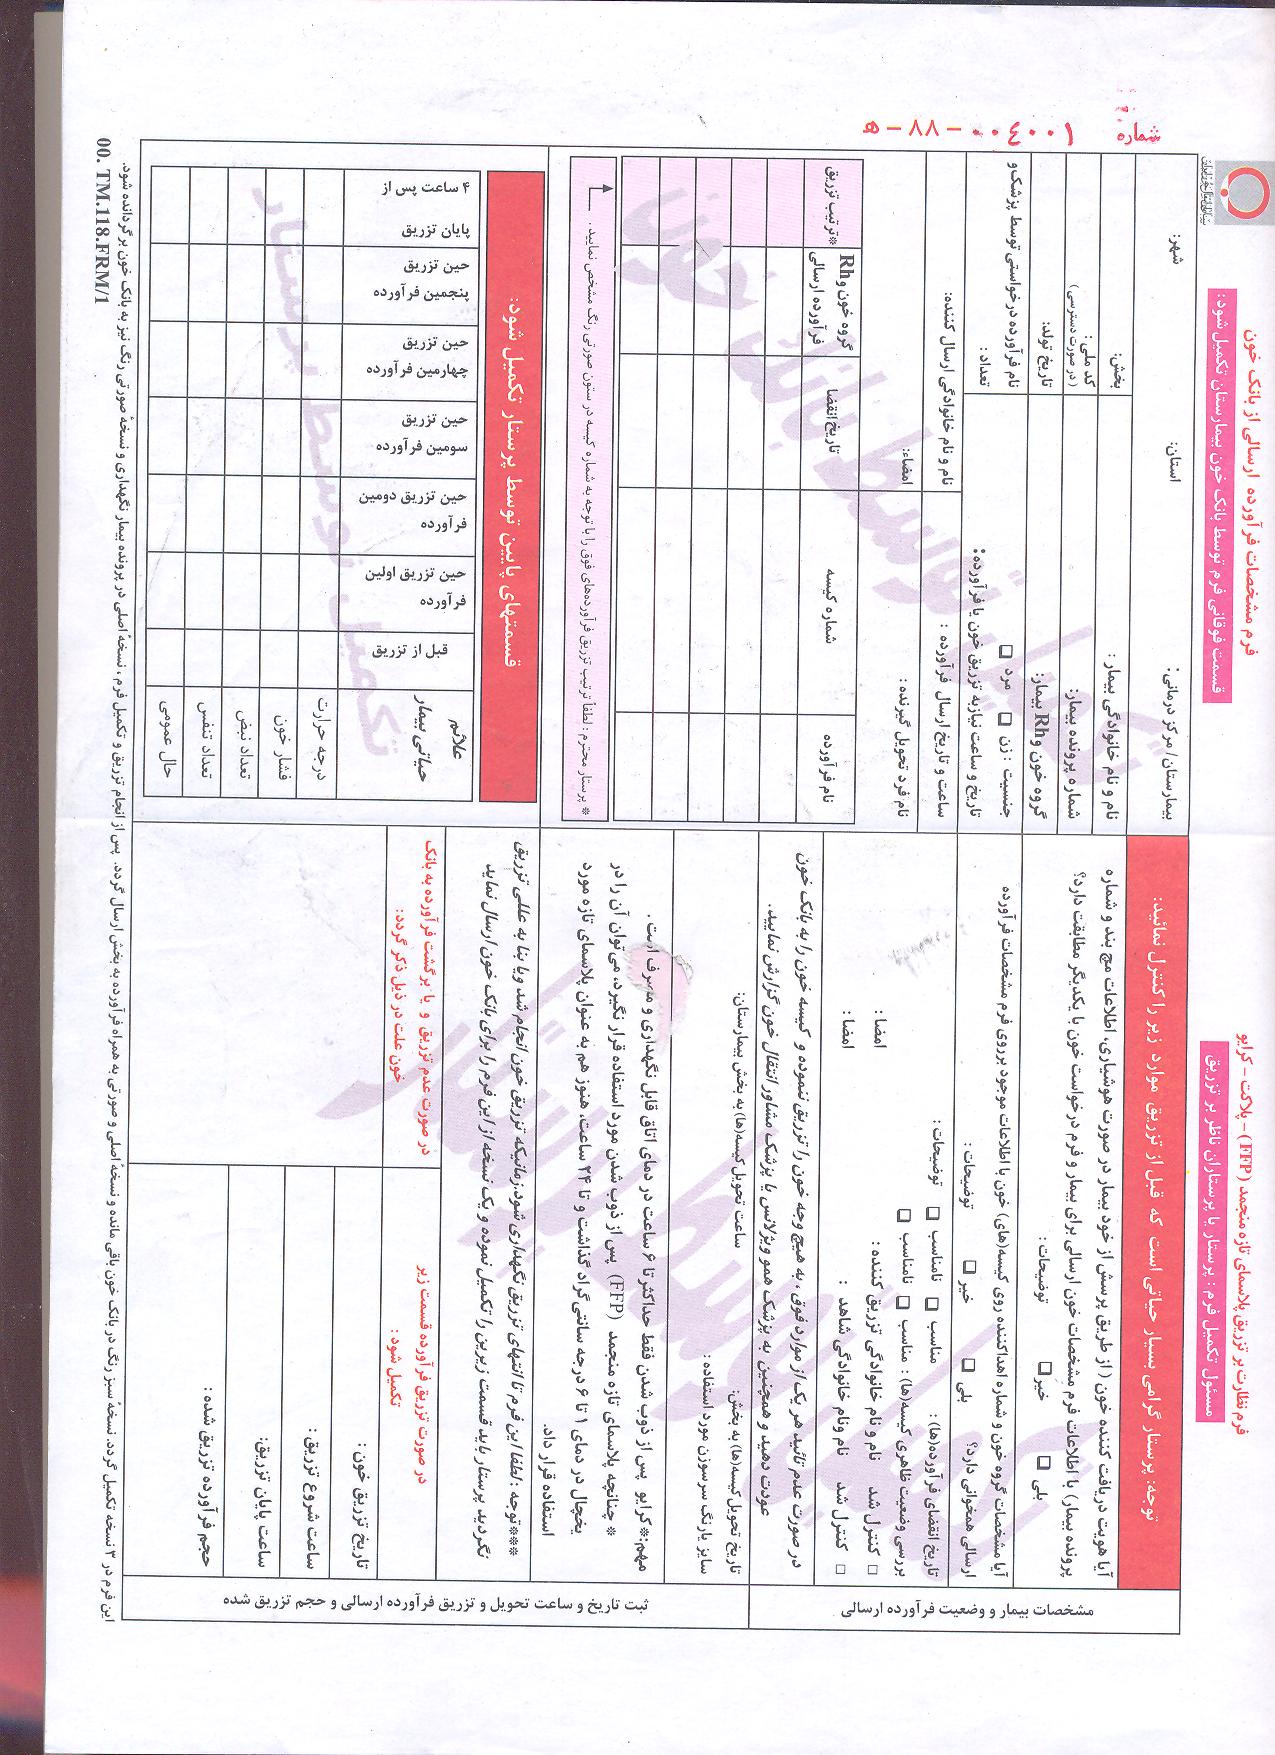 شماره ۰۰۴۰۰۱ - ۸۸ - ه
فرم مشخصات فرآورده ارسالی از بانک خون
قسمت فوقانی فرم توسط بانک خون بیمارستان تکمیل شود:
بیمارستان/ مرکز درمانی:
استان:
شهر:
نام و نام خانوادگی بیمار :
بخش:
شماره پرونده بیمار:
کد ملی :
(در صورت دسترسی )
گروه خون و Rh بیمار:
تاریخ تولد:
جنسیت : زن ☐ مرد ☐
نام فرآورده درخواستی توسط پزشک و
تعداد :
تاریخ و ساعت نیاز به تزریق خون یا فرآورده:
ساعت و تاریخ ارسال فرآورده :
نام و نام خانوادگی ارسال کننده:
نام فرد تحویل گیرنده :
امضاء:
نام فرآورده
شماره کیسه
تاریخ انقضا
گروه خون و Rh
فرآورده ارسالی
*ترتیب تزریق
* پرستار محترم : لطفاً ترتیب تزریق فرآورده‌های فوق را با توجه به شماره کیسه در ستون صورتی رنگ مشخص نمایید .
تکمیل توسط بانک خون
قسمتهای پایین توسط پرستار تکمیل شود:
علائم
حیاتی بیمار
قبل از تزریق
حین تزریق اولین
فرآورده
حین تزریق دومین
فرآورده
حین تزریق
سومین فرآورده
حین تزریق
چهارمین فرآورده
حین تزریق
پنجمین فرآورده
۴ ساعت پس از
پایان تزریق
درجه حرارت
فشار خون
تعداد نبض
تعداد تنفس
حال عمومی
تکمیل توسط پرستار
فرم نظارت بر تزریق پلاسمای تازه منجمد (FFP) – پلاکت – کرایو
مسئول تکمیل فرم : پرستار یا پرستاران ناظر بر تزریق
توجه: پرستار گرامی بسیار حیاتی است که قبل از تزریق موارد زیر را کنترل نمائید:
مشخصات بیمار و وضعیت فرآورده ارسالی
آیا هویت دریافت کننده خون ( از طریق پرسش از خود بیمار در صورت هوشیاری، اطلاعات مچ بند و شماره
پرونده بیمار) با اطلاعات فرم مشخصات خون ارسالی برای بیمار و فرم درخواست خون با یکدیگر مطابقت دارد؟
بلی ☐ خیر ☐ توضیحات :
آیا مشخصات گروه خون و شماره اهداکننده روی کیسه(های) خون با اطلاعات موجود بر روی فرم مشخصات فرآورده
ارسالی همخوانی دارد؟ بلی ☐ خیر ☐ توضیحات :
تاریخ انقضای فرآورده(ها) : مناسب ☐ نامناسب ☐ توضیحات :
بررسی وضعیت ظاهری کیسه(ها) : مناسب ☐ نامناسب ☐
☐ کنترل شد نام و نام خانوادگی تزریق کننده : امضا :
☐ کنترل شد نام ونام خانوادگی شاهد : امضا :
در صورت عدم تائید هر یک از موارد فوق ، به هیچ وجه خون را تزریق ننموده و کیسه خون را به بانک خون
عودت دهید و همچنین به پزشک هموویژلانس یا پزشک مشاور انتقال خون گزارش نمایید.
ثبت تاریخ و ساعت تحویل و تزریق فرآورده ارسالی و حجم تزریق شده
تاریخ تحویل کیسه(ها) به بخش: ساعت تحویل کیسه(ها) به بخش بیمارستان:
سایز یا رنگ سرسوزن مورد استفاده :
مهم:* کرایو پس از ذوب شدن فقط حداکثر تا ۶ ساعت در دمای اتاق قابل نگهداری و مصرف است .
* چنانچه پلاسمای تازه منجمد (FFP) پس از ذوب شدن مورد استفاده قرار نگیرد، می‌توان آن را در
یخچال در دمای ۱ تا ۶ درجه سانتی گراد گذاشت و تا ۲۴ ساعت، هنوز هم به عنوان پلاسمای تازه مورد
استفاده قرار داد.
***توجه : لطفا این فرم تا انتهای تزریق نگهداری شود.زمانیکه تزریق خون انجام شد ویا بنا به عللی تزریق
نگردید پرستار باید قسمت زیرین را تکمیل نموده و یک نسخه از این فرم را برای بانک خون ارسال نماید
در صورت تزریق فرآورده قسمت زیر
تکمیل شود :
در صورت عدم تزریق و یا برگشت فرآورده به بانک
خون علت در ذیل ذکر گردد:
تاریخ تزریق خون :
ساعت شروع تزریق :
ساعت پایان تزریق:
حجم فرآورده تزریق شده :
تکمیل توسط پرستار
این فرم در ۳ نسخه تکمیل گردد. نسخهٔ سبز رنگ در بانک خون باقی مانده و نسخهٔ اصلی و صورتی به همراه فرآورده به بخش ارسال گردد. پس از انجام تزریق و تکمیل فرم ، نسخهٔ اصلی در پرونده بیمار نگهداری و نسخهٔ صورتی رنگ نیز به بانک خون برگردانده شود.
00. TM.118.FRM/1